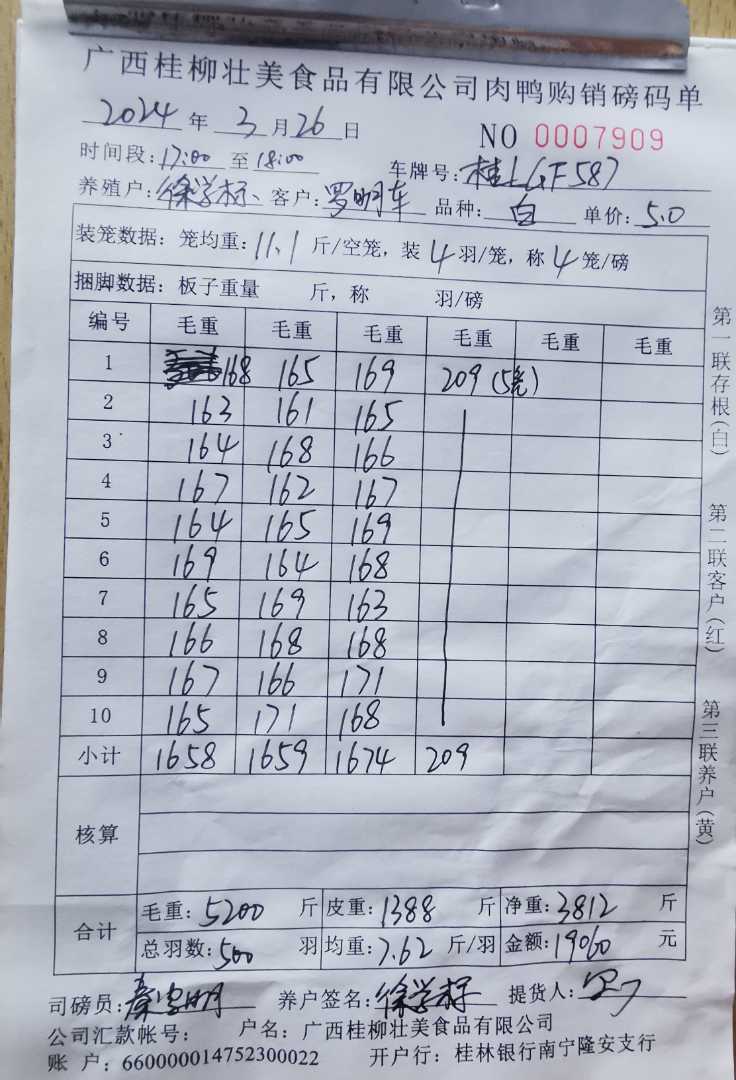 广西桂柳壮美食品有限公司肉鸭购销磅码单
2024年3月26日 NO 0007909
时间段:17:00至18:00 车牌号:桂LGF587
养殖户:徐学标、客户:罗明车 品种:白 单价:5.0
装笼数据:笼均重:11.1斤/空笼,装4羽/笼,称4笼/磅
捆脚数据:板子重量 斤,称 羽/磅
编号 毛重 毛重 毛重 毛重 毛重 毛重
1 168 165 169 209(5笼)
2 163 161 165
3 164 168 166
4 167 162 167
5 164 165 169
6 169 164 168
7 165 169 163
8 166 168 168
9 167 166 171
10 165 171 168
小计 1658 1659 1674 209
核算
合计 毛重:5200斤 皮重:1388斤 净重:3812斤
总羽数:500羽 均重:7.62斤/羽 金额:19060元
司磅员: 养户签名:徐学标 提货人:
公司汇款帐号: 户名:广西桂柳壮美食品有限公司
账 户:660000014752300022 开户行:桂林银行南宁隆安支行
第一联存根(白) 第二联客户(红) 第三联养户(黄)